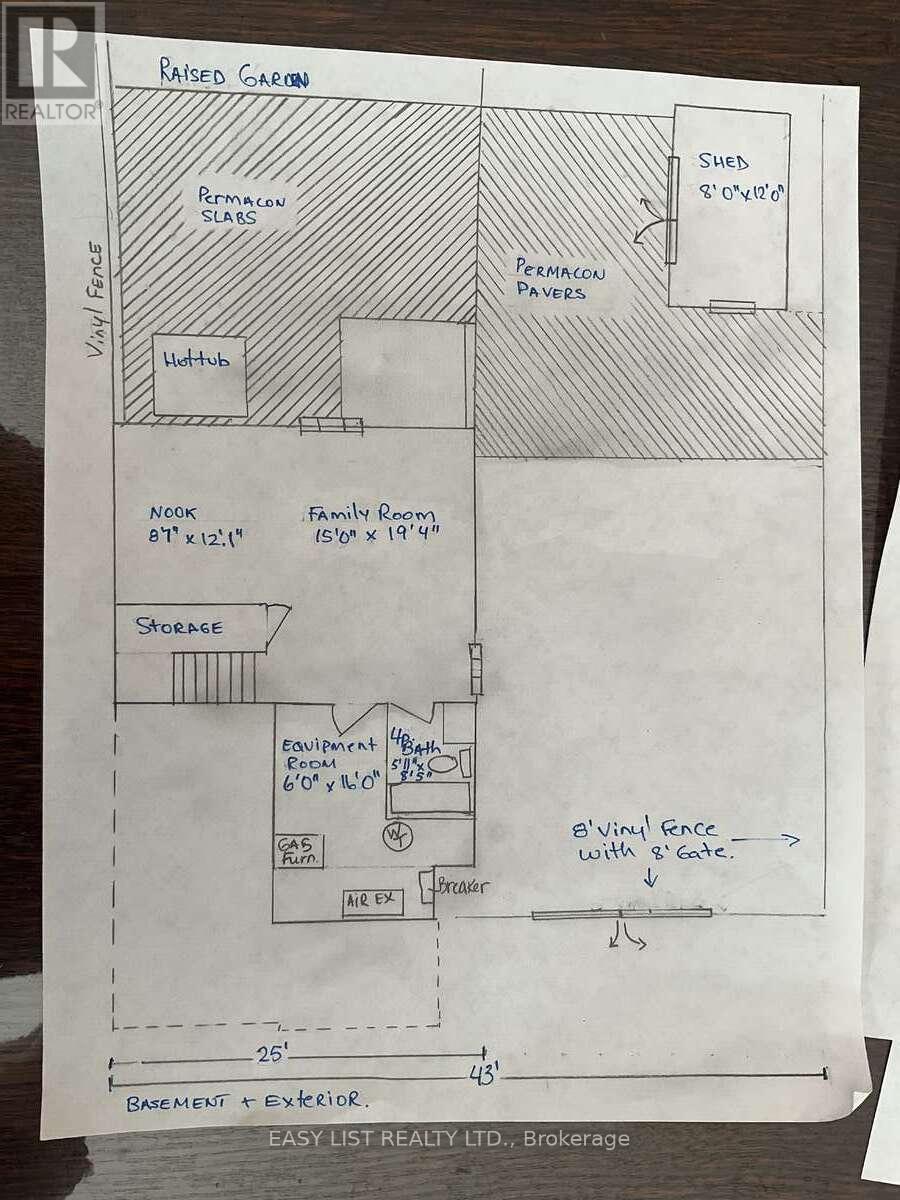 R
REALTOR®
RAISED GARDEN
PERMACON
SLABS
SHED
8'0" x 12'0"
PERMACON
PAVERS
Vinyl Fence
Hottub
NOOK
8'7" x 12'.1"
Family Room
15'0" x 19'4"
STORAGE
EQUIPMENT
ROOM
6'0" x 16'0"
4p.
BATH
5'11" x
8'5"
WT
GAS
Furn.
AIR EX
Breaker
8' Vinyl Fence
with 8' Gate.
25'
43'
BASEMENT + EXTERIOR.
EASY LIST REALTY LTD., Brokerage